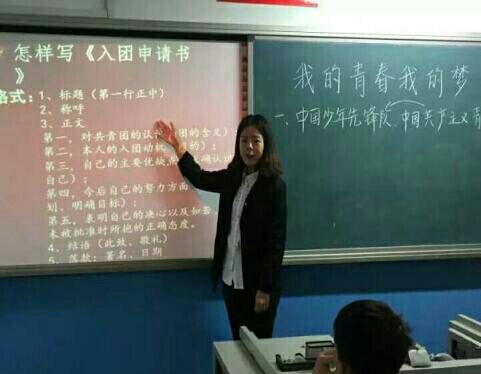 怎样写《入团申请书
》
格式：1、标题（第一行正中）
2、称呼
3、正文
第一，对共青团的认 团的含义）；
第二，本人的入团动机 的）；
第三，自己的主要优缺点 正确认识
自己）；
第四，今后自己的努力方面
划、明确目标）；
第五，表明自己的决心以及如若
未被批准时所抱的正确态度。
4、结语（此致、敬礼）
5、落款：署名、日期
我的青春我的梦
一、中国少年先锋队、中国共产主义青